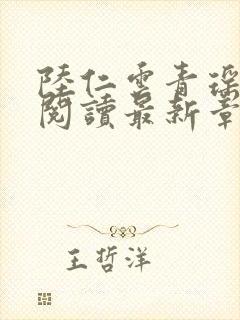 陸仁雲青瑶
閱讀最新章
王哲洋